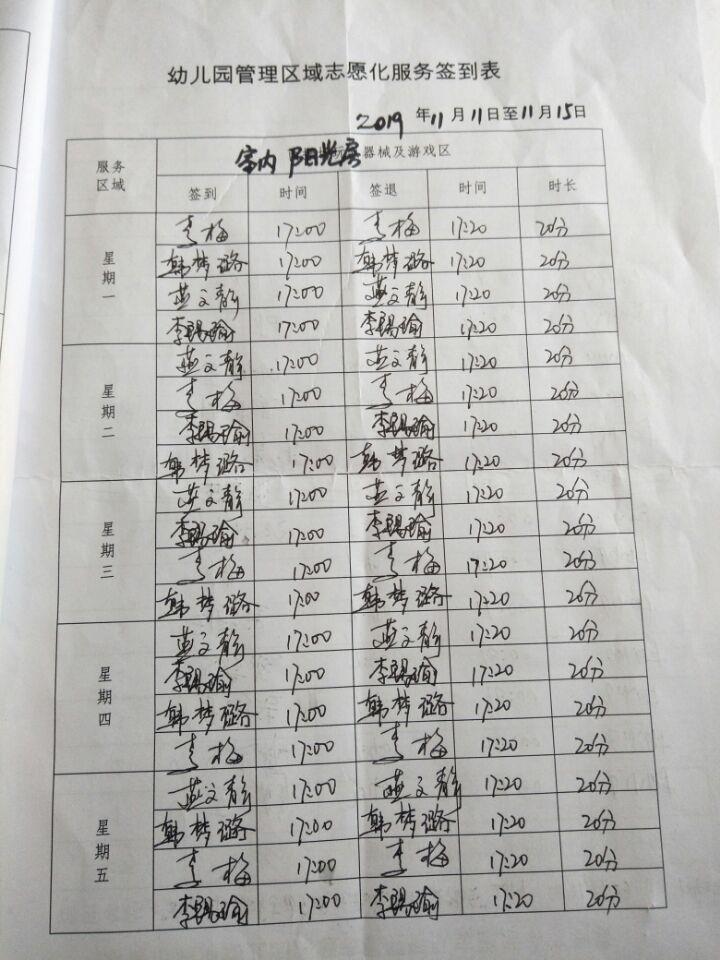 幼儿园管理区域志愿化服务签到表
2019 年 11 月 11 日至 11 月 15 日
服务区域 室内 阳光房 器械及游戏区
签到 时间 签退 时间 时长
星期一
青梅 17:00 青梅 17:20 20分
韩梦璐 17:00 韩梦璐 17:20 20分
燕文静 17:00 燕文静 17:20 20分
李锡瑜 17:00 李锡瑜 17:20 20分
星期二
燕文静 17:00 燕文静 17:20 20分
青梅 17:00 青梅 17:20 20分
李锡瑜 17:00 李锡瑜 17:20 20分
韩梦璐 17:00 韩梦璐 17:20 20分
星期三
燕文静 17:00 燕文静 17:20 20分
李锡瑜 17:00 李锡瑜 17:20 20分
青梅 17:00 青梅 17:20 20分
韩梦璐 17:00 韩梦璐 17:20 20分
星期四
燕文静 17:00 燕文静 17:20 20分
李锡瑜 17:00 李锡瑜 17:20 20分
韩梦璐 17:00 韩梦璐 17:20 20分
青梅 17:00 青梅 17:20 20分
星期五
燕文静 17:00 燕文静 17:20 20分
韩梦璐 17:00 韩梦璐 17:20 20分
青梅 17:00 青梅 17:20 20分
李锡瑜 17:00 李锡瑜 17:20 20分